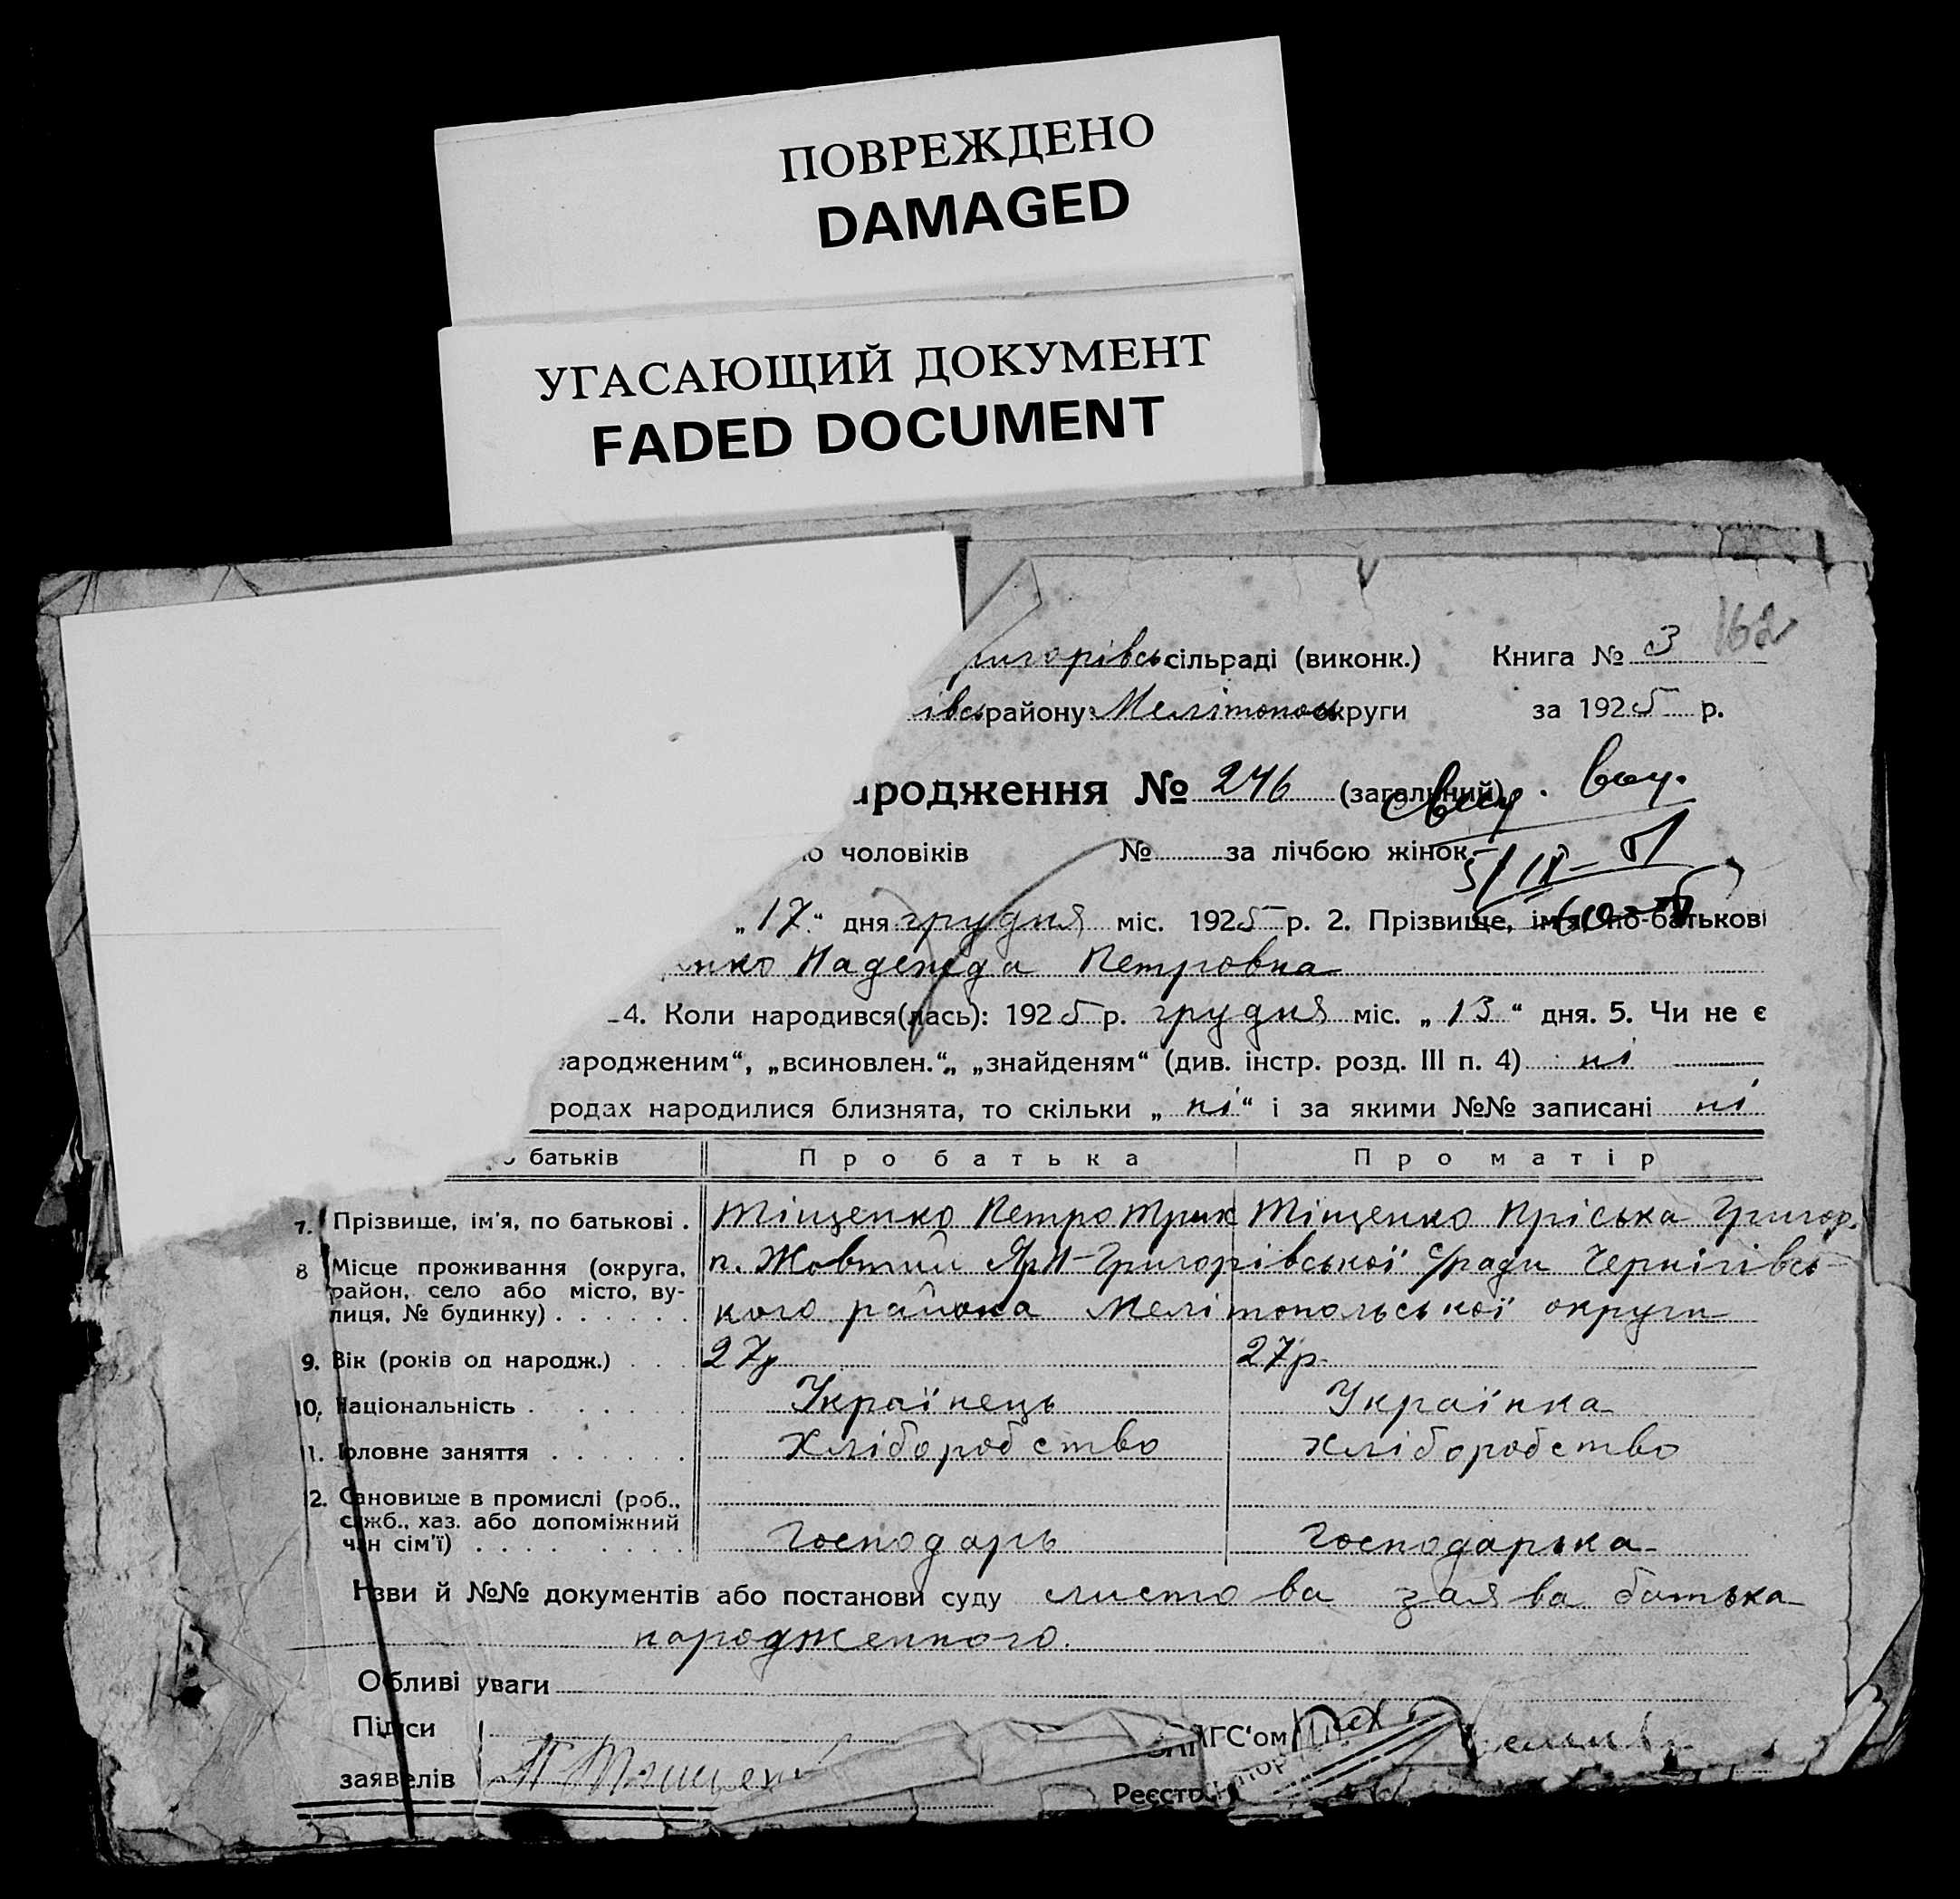 ПОВРЕЖДЕНО
DAMAGED
УГАСАЮЩИЙ ДОКУМЕНТ
FADED DOCUMENT
162
игорівсь сільраді (виконк.) Книга № 3
івсь району Мелітополь округи за 1925 р.
ародження № 246 (загальний)
чоловіків № за лічбою жінок
„17“ дня грудня міс. 1925 р. 2. Прізвище, ім'я, по-батькові
енко Надежда Петровна
4. Коли народився(лась): 1925 р. грудня міс. „13“ дня. 5. Чи не є
ародженим“, „всиновлен.“, „знайденям“ (див. інстр. розд. III п. 4) ні
родах народилися близнята, то скільки „ні“ і за якими №№ записані ні
батьків Про батька Про матір
7. Прізвище, ім'я, по батькові . Тіщенко Петро Трик Тіщенко Пріська Григор.
8 Місце проживання (округа, п. Жовтий Яр Н-Григорівської с/ради Чернігівсь-
район, село або місто, ву-
лиця, № будинку) . . . . . . кого района Мелітопольської округи
9. Вік (років од народж.) . . . 27р 27р.
10. Національність . . . . . Українець Українка
11. Головне заняття . . . . . . Хліборобство хліборобство
12. Становише в промислі (роб.,
служб., хаз. або допоміжний
чен сім'ї) . . . . . . . . . Господарь Господарька
Назви й №№ документів або постанови суду листова заява батька
народженного.
Особливі уваги
Підписи ЗАГС'ом
заявителів П Тищенко Реєстр